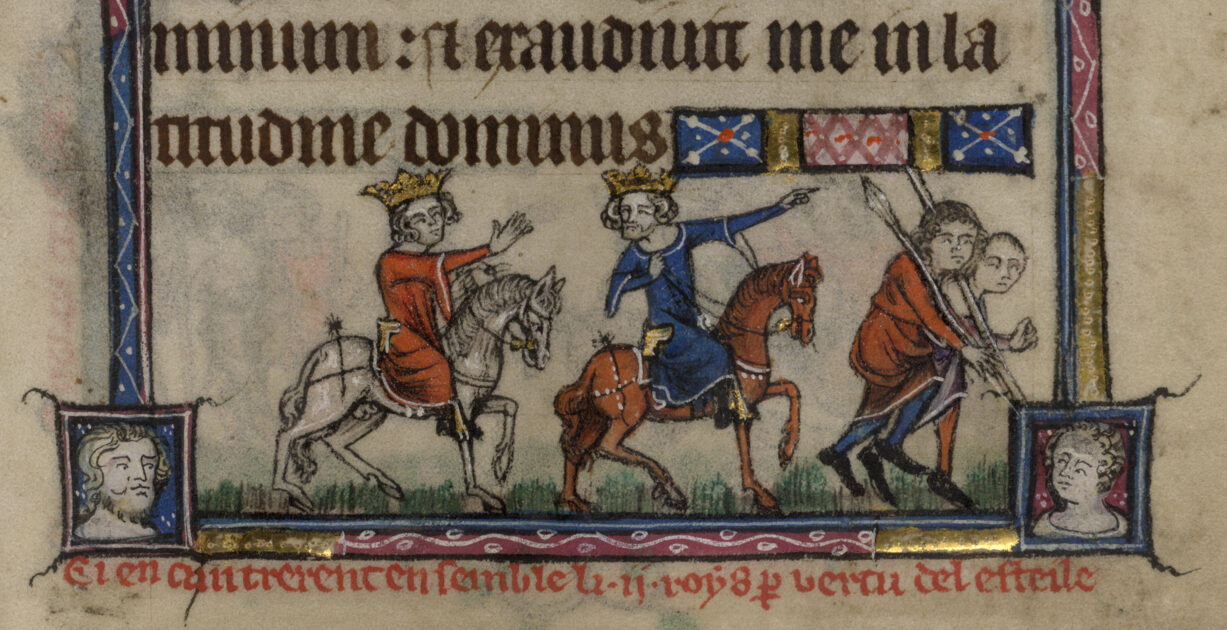 minum : et exaudivit me in la
titudine dominus
Ci en cuntrerent en semble li · ij · roys p vertu del esteile